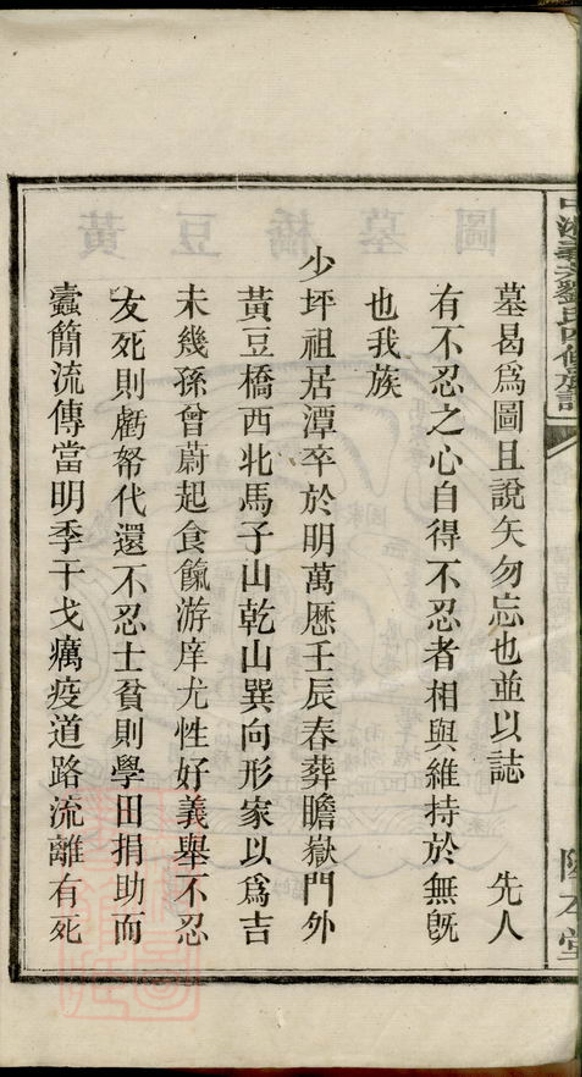 墓曷爲圖且說矢勿忘也並以誌　先人
有不忍之心自得不忍者相與維持於無旣
也我族
少坪祖居潭卒於明萬厯壬辰春葬瞻嶽門外
黃豆橋西北馬子山乾山巽向形家以爲吉
未幾孫曾蔚起食餼游庠尤性好義舉不忍
友死則虧帑代還不忍士貧則學田捐助而
蠹簡流傳當明季干戈癘疫道路流離有死